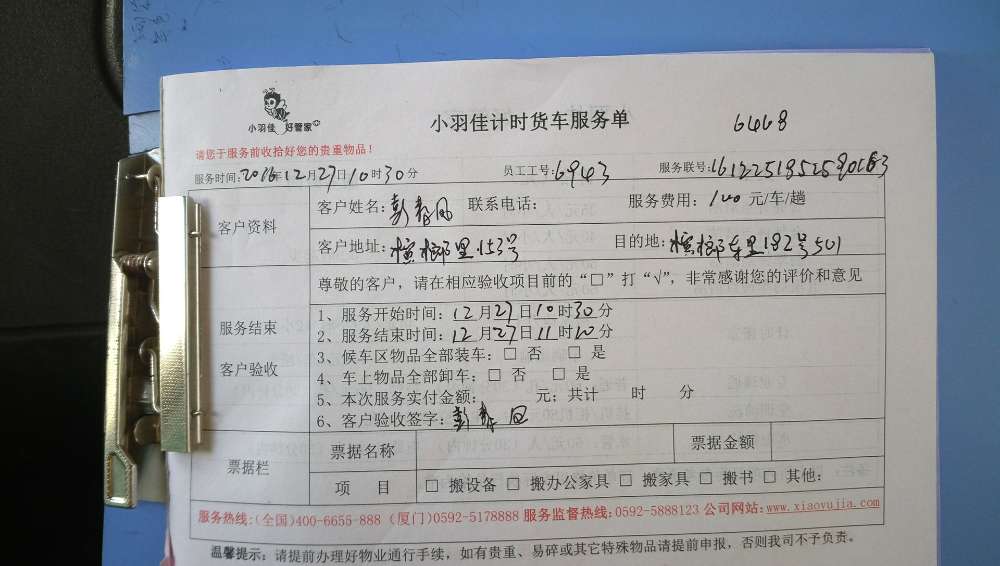 小羽佳 好管家
小羽佳计时货车服务单
6468
请您于服务前收拾好您的贵重物品！
服务时间：2016年12月27日10时30分 员工工号：6943 服务联号：
客户资料
客户姓名：彭春凤 联系电话： 服务费用：140元/车/趟
客户地址：槟榔里153号 目的地：槟榔东里182号501
尊敬的客户，请在相应验收项目前的“□”打“√”，非常感谢您的评价和意见
服务结束
客户验收
1、服务开始时间：12月27日10时30分
2、服务结束时间：12月27日11时20分
3、候车区物品全部装车：□ 否 □ 是
4、车上物品全部卸车：□ 否 □ 是
5、本次服务实付金额： 元；共计 时 分
6、客户验收签字：彭春凤
票据栏
票据名称 票据金额
项 目 □ 搬设备 □ 搬办公家具 □ 搬家具 □ 搬书 □ 其他：
服务热线：(全国)400-6655-888 (厦门)0592-5178888 服务监督热线：0592-5888123 公司网站：www.xiaoyujia.com
温馨提示：请提前办理好物业通行手续，如有贵重、易碎或其它特殊物品请提前申报，否则我司不予负责。